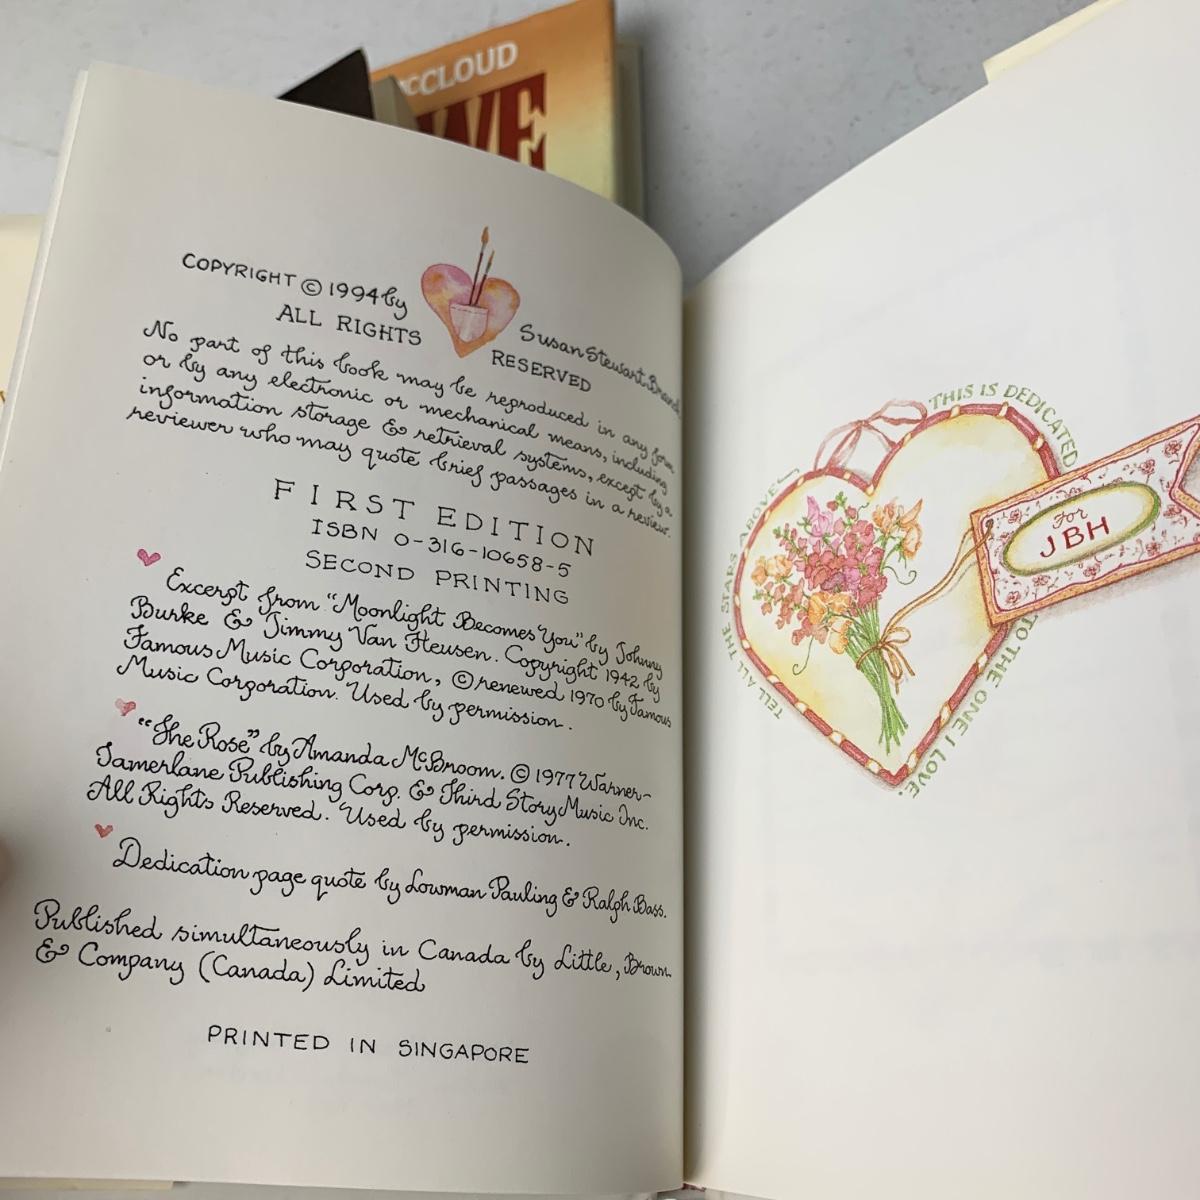 McCLOUD
COPYRIGHT © 1994 by
Susan Stewart Branch
ALL RIGHTS RESERVED
No part of this book may be reproduced in any form
or by any electronic or mechanical means, including
information storage & retrieval systems, except by a
reviewer who may quote brief passages in a review.
FIRST EDITION
ISBN 0-316-10658-5
SECOND PRINTING
Excerpt from "Moonlight Becomes You" by Johnny
Burke & Jimmy Van Heusen. Copyright 1942 by
Famous Music Corporation, © renewed 1970 by Famous
Music Corporation. Used by permission.
"The Rose" by Amanda McBroom. © 1977 Warner-
Tamerlane Publishing Corp. & Third Story Music Inc.
All Rights Reserved. Used by permission.
Dedication page quote by Lowman Pauling & Ralph Bass.
Published simultaneously in Canada by Little, Brown
& Company (Canada) Limited
PRINTED IN SINGAPORE
THIS IS DEDICATED
TO THE ONE I LOVE.
TELL ALL THE STARS ABOVE
For
JBH